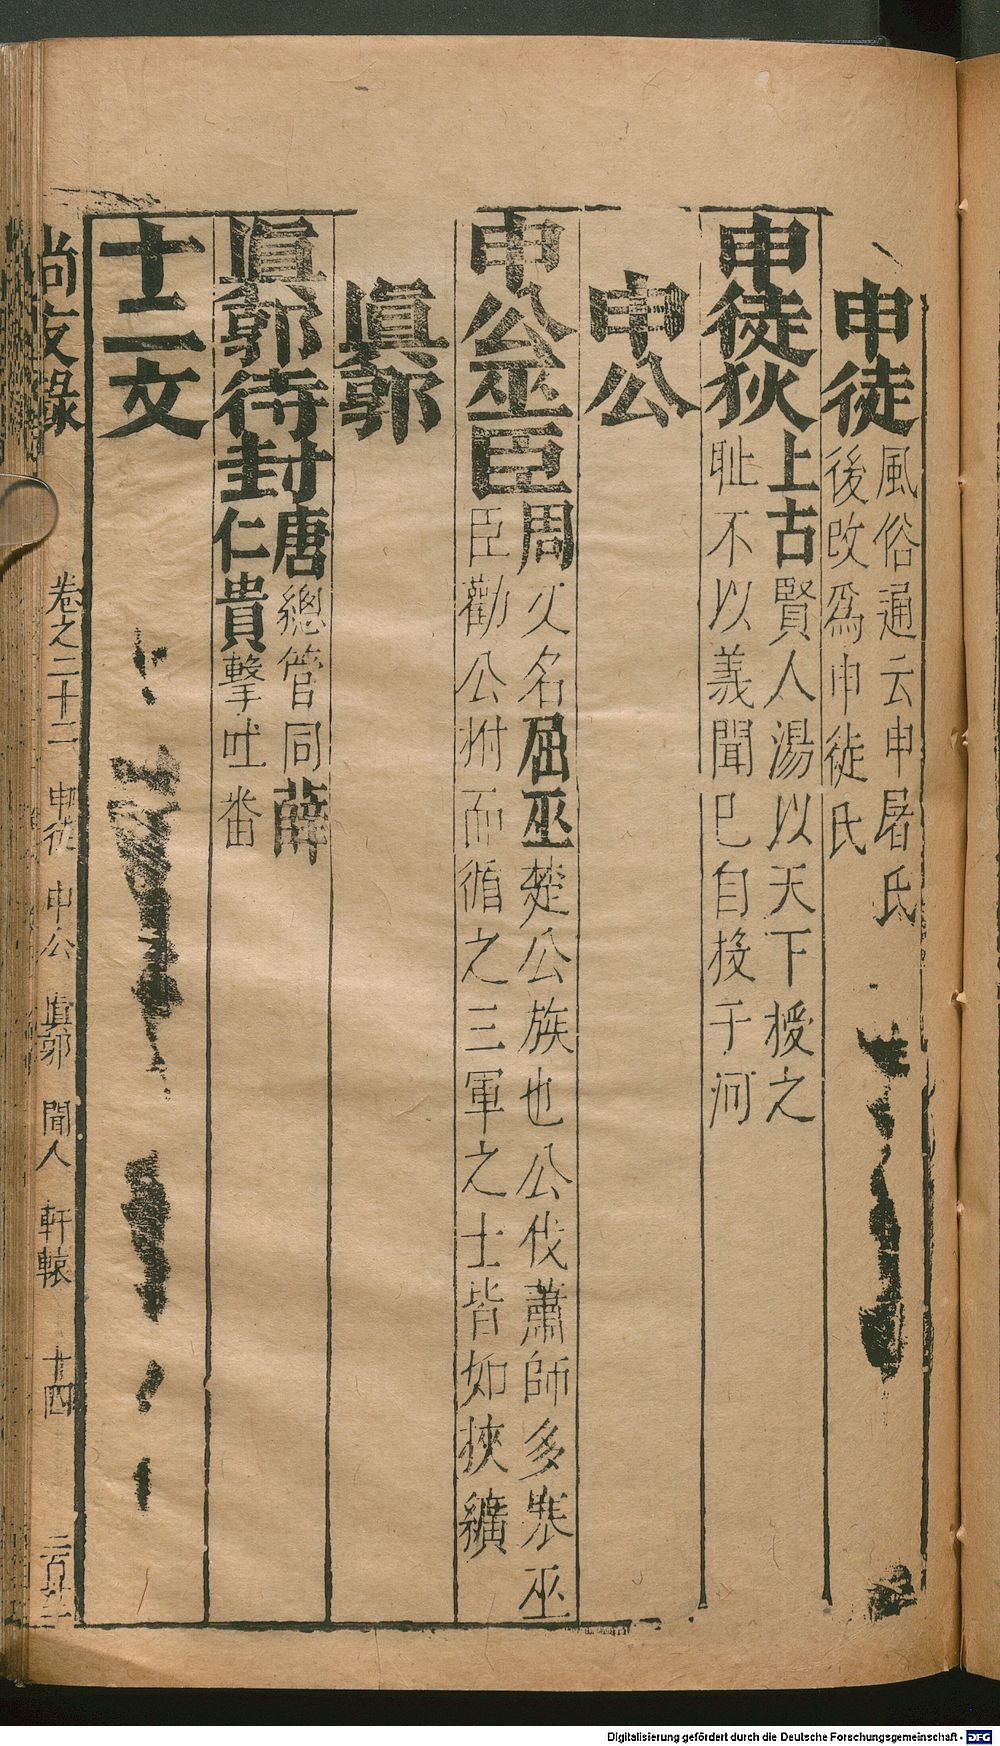 申徒
風俗通云申屠氏
後改為申徒氏
申徒狄
上古賢人湯以天下授之
恥不以義聞已自投于河
申公
申公巫臣
周又名屈巫楚公族也公伐蕭師多寒巫
臣勸公拊而循之三軍之士皆如挾纊
眞郭
眞郭待封
唐總管同薛
仁貴擊吐番
十二文
尚友錄 卷之二十二 申徒 申公 眞郭 聞人 軒轅 十四
Digitalisierung gefördert durch die Deutsche Forschungsgemeinschaft - DFG